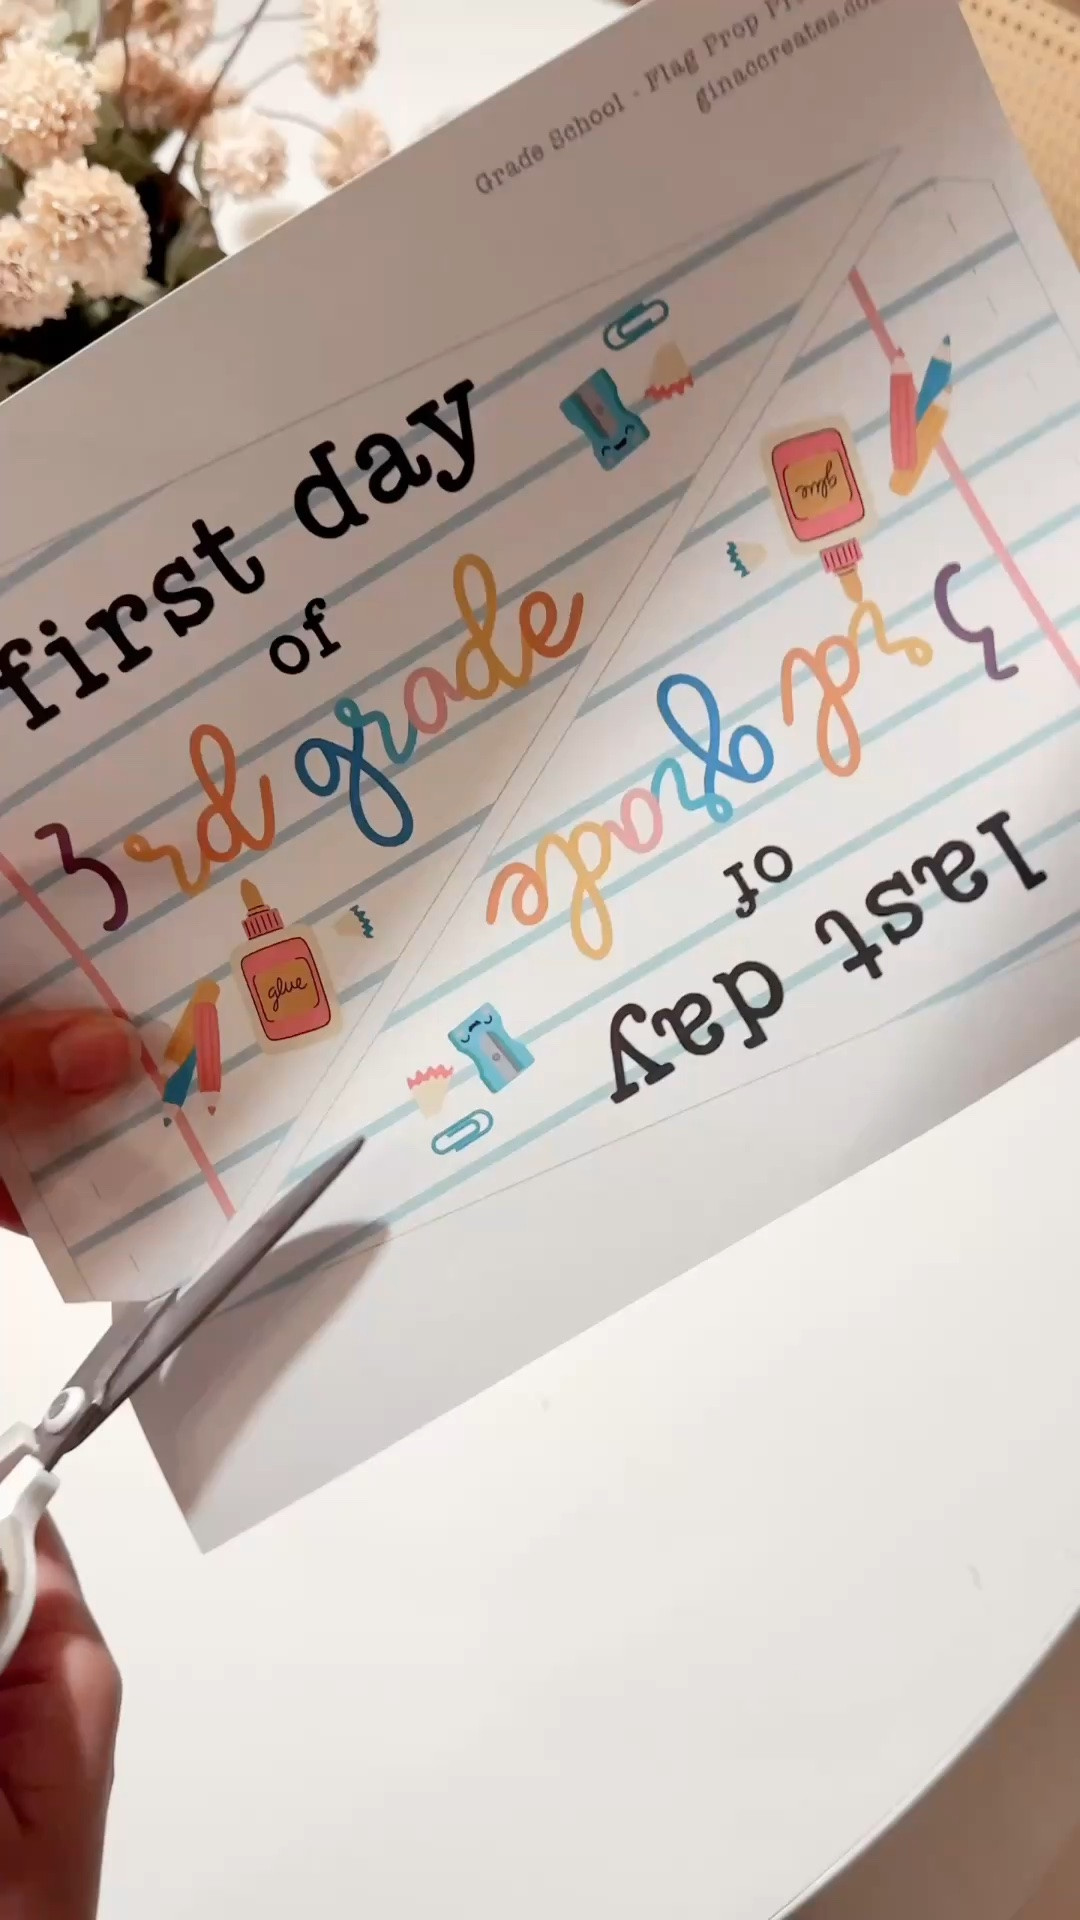 Grade School - Flag Prop
ginaccreates.co
first day
of
3rd grade
glue
glue
last day
of
3rd grade